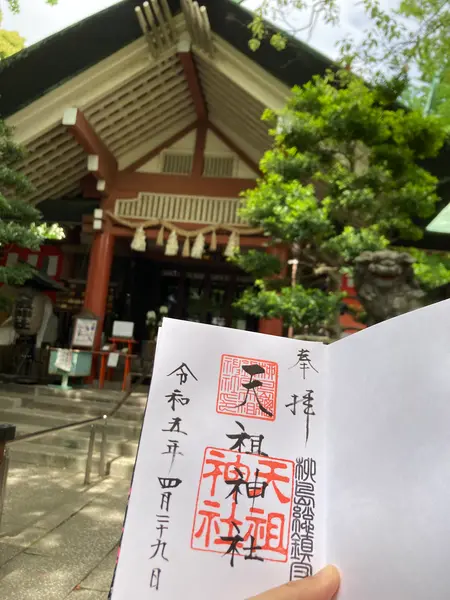 奉拝
柳島總鎮守
天祖神社
天祖
神社
令和五年 四月二十九日